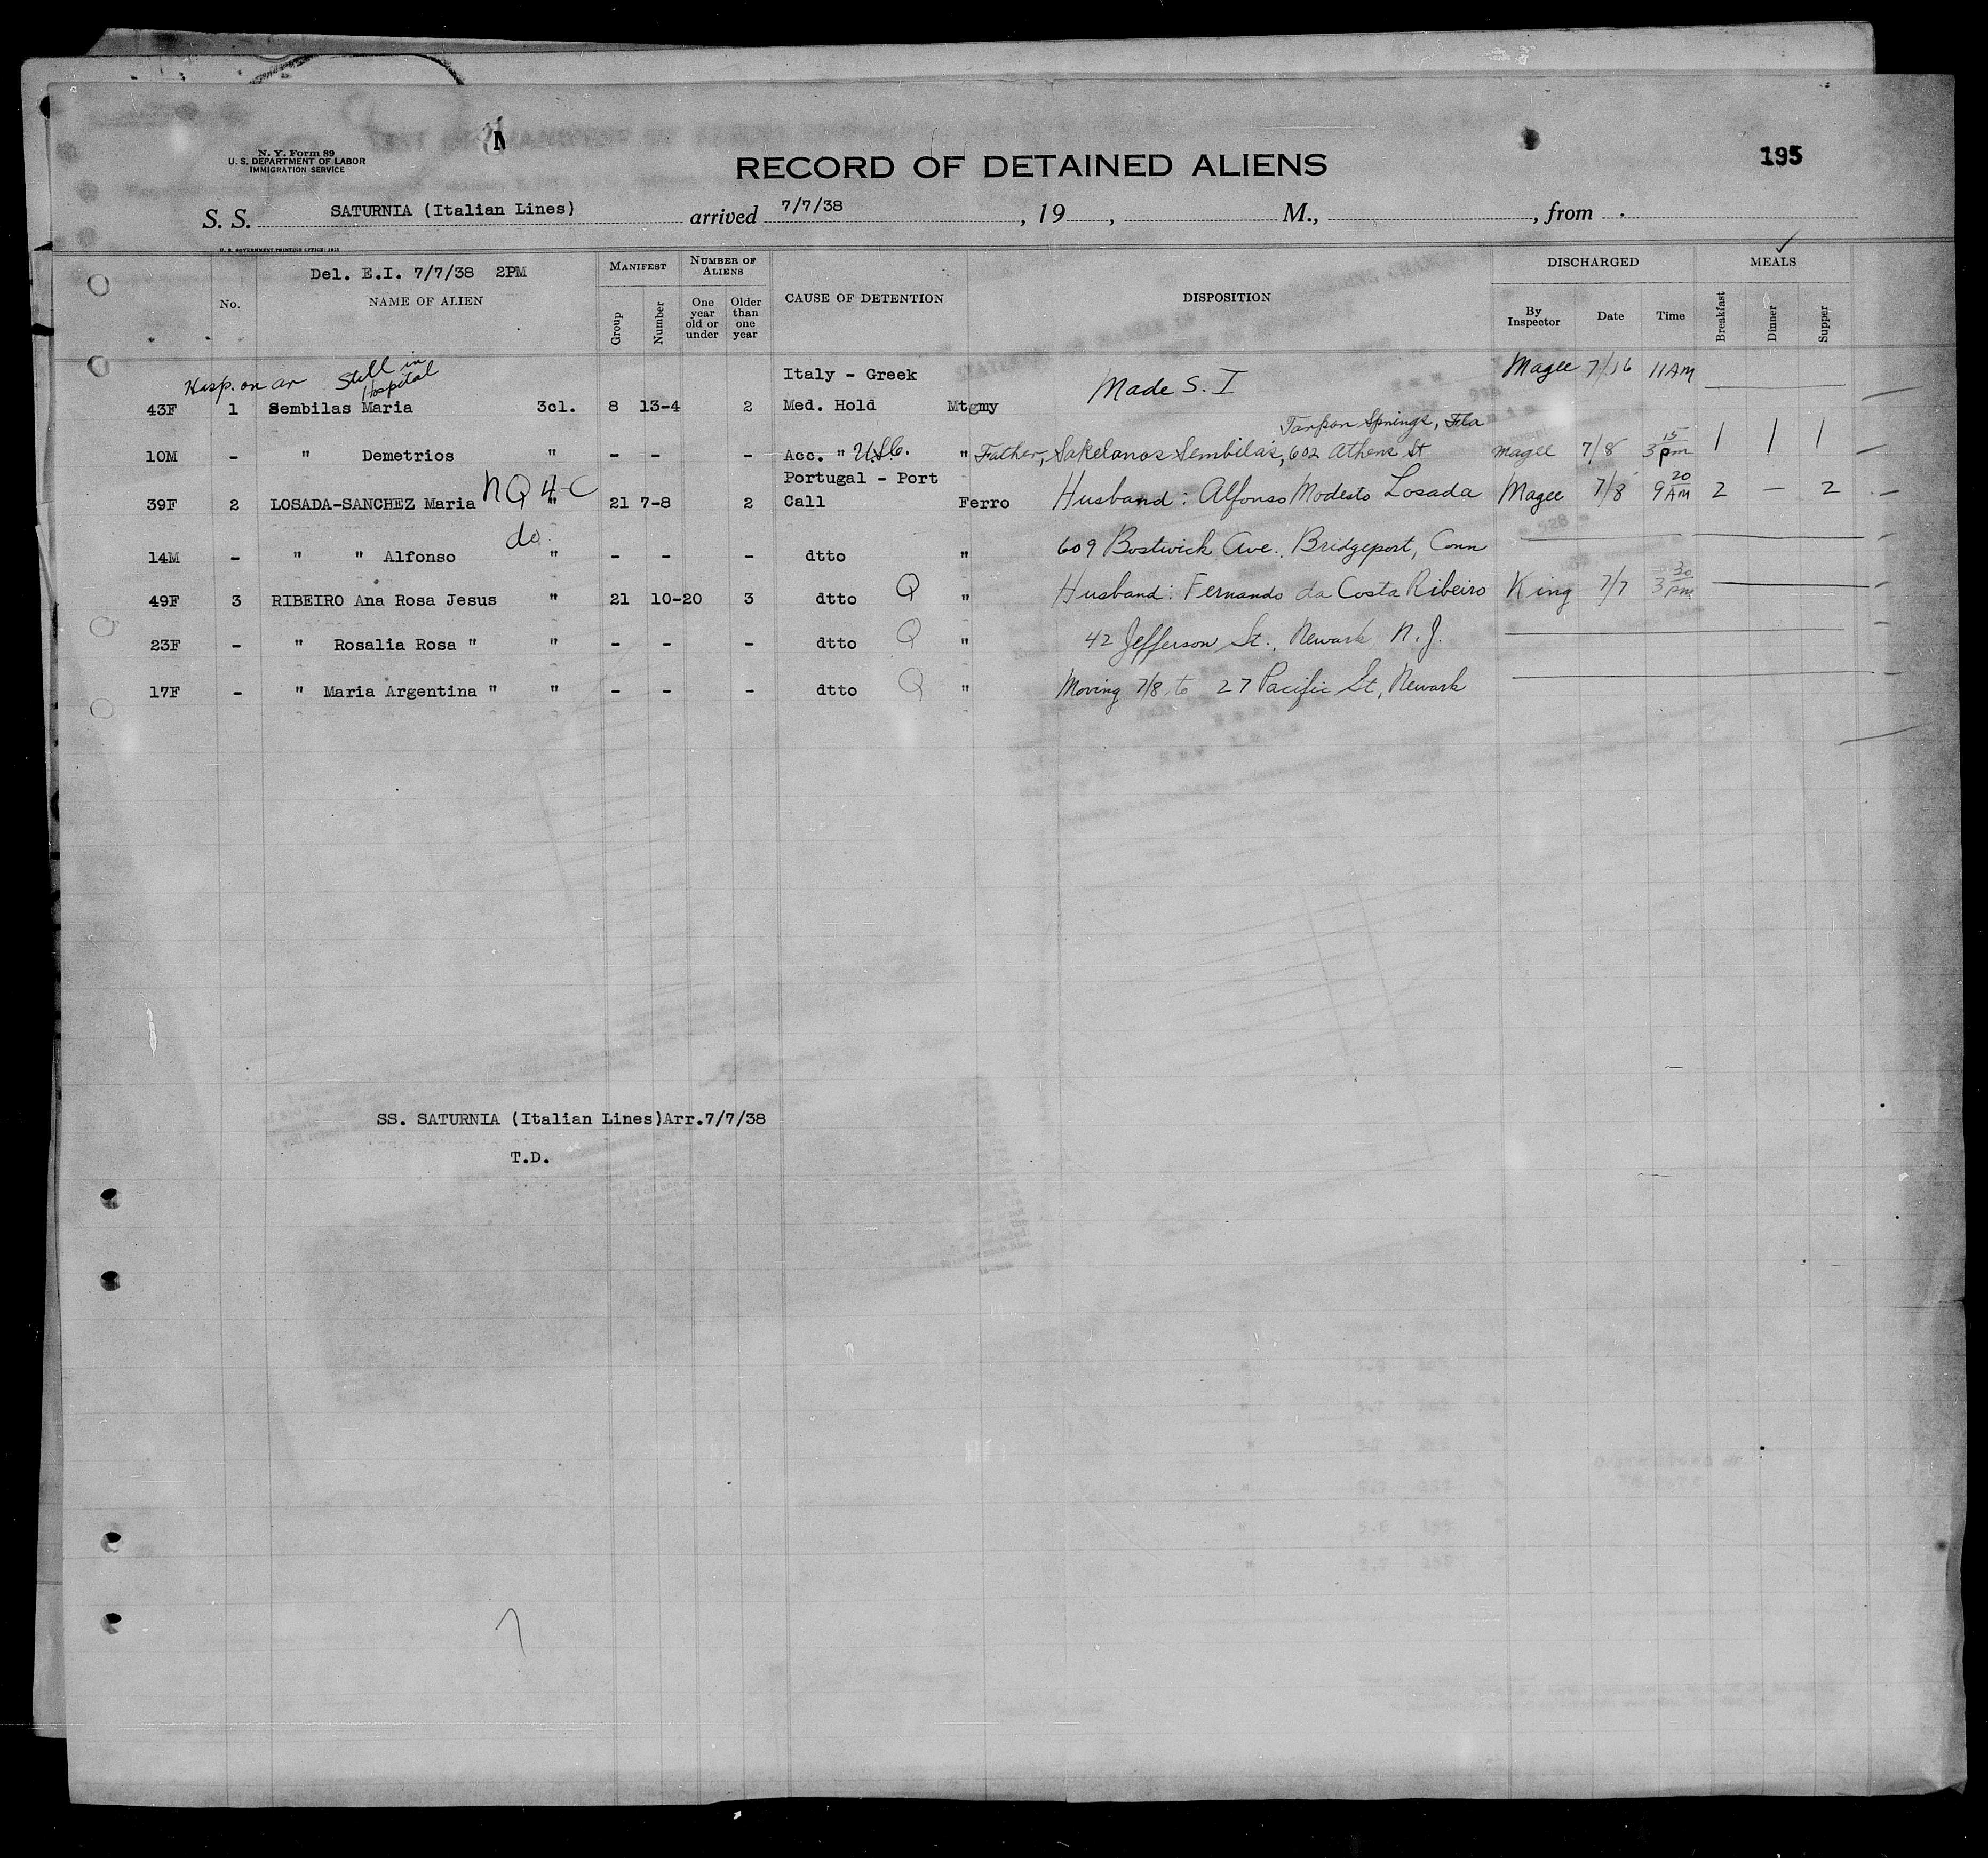 N. Y. Form 89
U. S. DEPARTMENT OF LABOR
IMMIGRATION SERVICE
RECORD OF DETAINED ALIENS
195
S. S. SATURNIA (Italian Lines) arrived 7/7/38, 19 , M., , from
U. S. GOVERNMENT PRINTING OFFICE: 1931
Del. E.I. 7/7/38 2PM
No. NAME OF ALIEN MANIFEST Group Number NUMBER OF ALIENS One year old or under Older than one year CAUSE OF DETENTION DISPOSITION DISCHARGED By Inspector Date Time MEALS Breakfast Dinner Supper
Hosp. on ar Still in Hospital Italy - Greek Made S. I Magee 7/16 11 AM
43F 1 Sembilas Maria 3cl. 8 13-4 2 Med. Hold Mtgmy
Tarpon Springs, Fla
10M - " Demetrios " - - - Acc. " U.S.C. " Father, Sakelanos Sembilas, 602 Athens St Magee 7/8 3 15 pm 1 1 1
Portugal - Port
39F 2 LOSADA-SANCHEZ Maria NQ 4-C " 21 7-8 2 Call Ferro Husband: Alfonso Modesto Losada Magee 7/8 9 20 AM 2 - 2
do.
14M - " " Alfonso " - - - dtto " 609 Bostwick Ave., Bridgeport, Conn
49F 3 RIBEIRO Ana Rosa Jesus " 21 10-20 3 dtto Q " Husband: Fernando da Costa Ribeiro King 7/7 3 30 pm
23F - " Rosalia Rosa " " - - - dtto Q " 42 Jefferson St., Newark N. J.
17F - " Maria Argentina " " - - - dtto Q " Moving 7/8 to 27 Pacific St, Newark
SS. SATURNIA (Italian Lines)Arr.7/7/38
T.D.